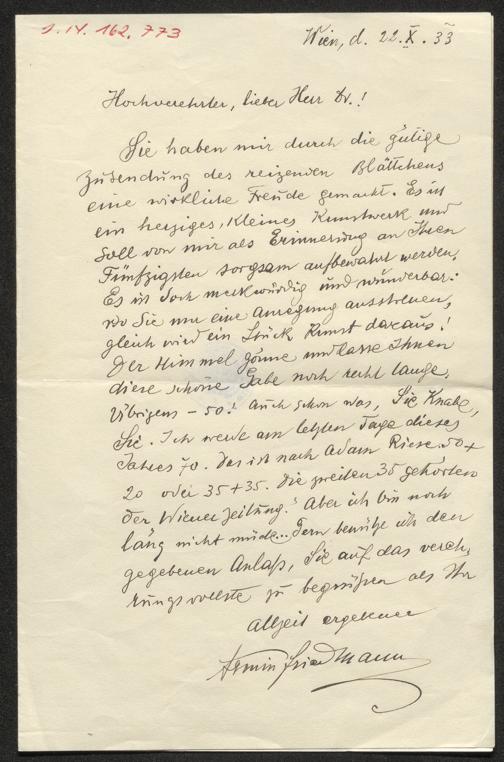 I.N. 162.773
Wien, d. 22.X.33
Hochverehrter, lieber Herr Dr.!
Sie haben mir durch die gütige
Zusendung des reizenden Blättchens
eine wirkliche Freude gemacht. Es ist
ein herziges, kleines Kunstwerk und
soll von mir als Erinnerung an Ihren
Fünfzigsten sorgsam aufbewahrt werden.
Es ist doch merkwürdig und wunderbar:
wo Sie nur eine Anregung ausstreuen,
gleich wird ein Stück Kunst daraus!
Der Himmel gönne und lasse Ihnen
diese schöne Gabe noch recht lange.
Übrigens – 50! Auch schon was, Sie Knabe,
Sie. Ich werde am letzten Tage dieses
Jahres 70. Das ist nach Adam Riese 50+
20 oder 35+35. Die zweiten 35 gehörten
der Wiener Zeitung! Aber ich bin noch
lang nicht müde... Gern benütze ich den
gegebenen Anlaß, Sie auf das vereh-
rungsvollste zu begrüßen als Ihr
allzeit ergebener
Armin Friedmann